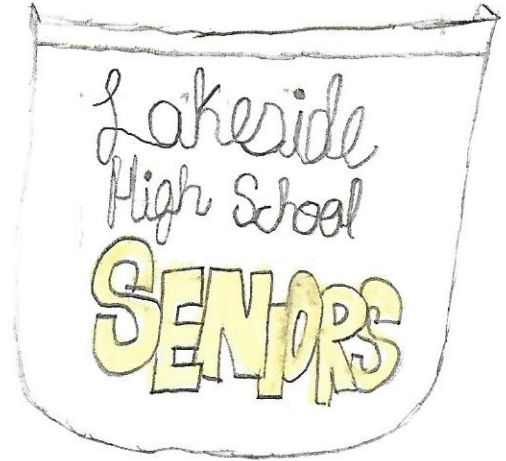 Lakeside
High School
SENIORS